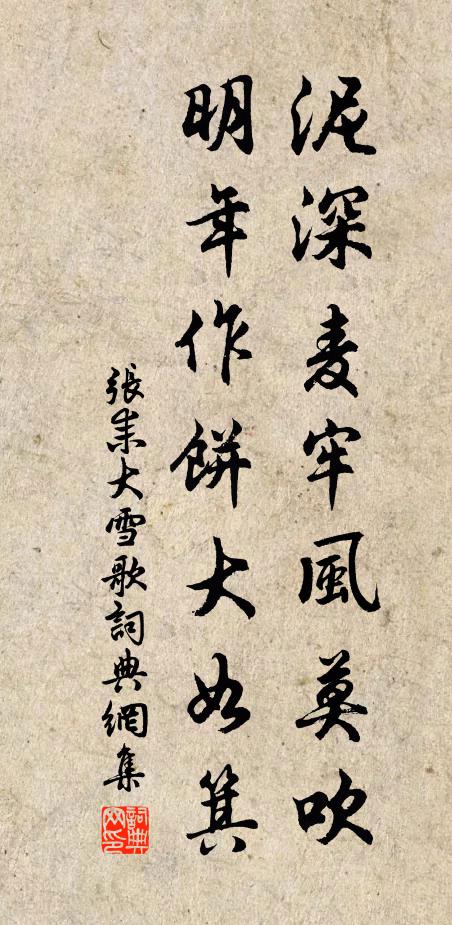 泥深麦牢風莫吹
明年作餅大如箕
張耒大雪歌詞典網集
詞典網印